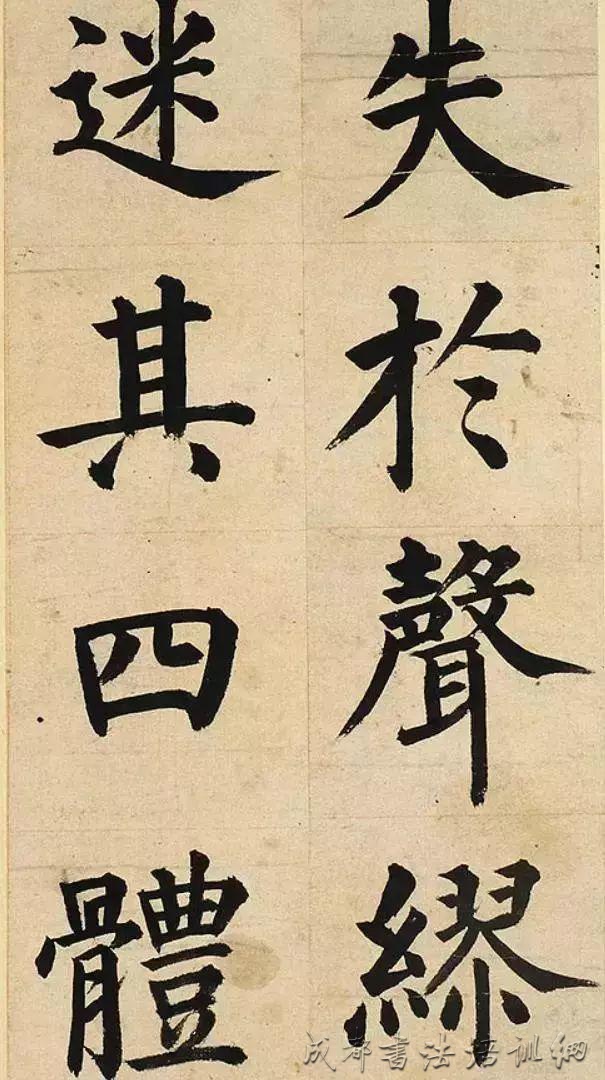 失於聲繆
迷其四體
成都書法培训網